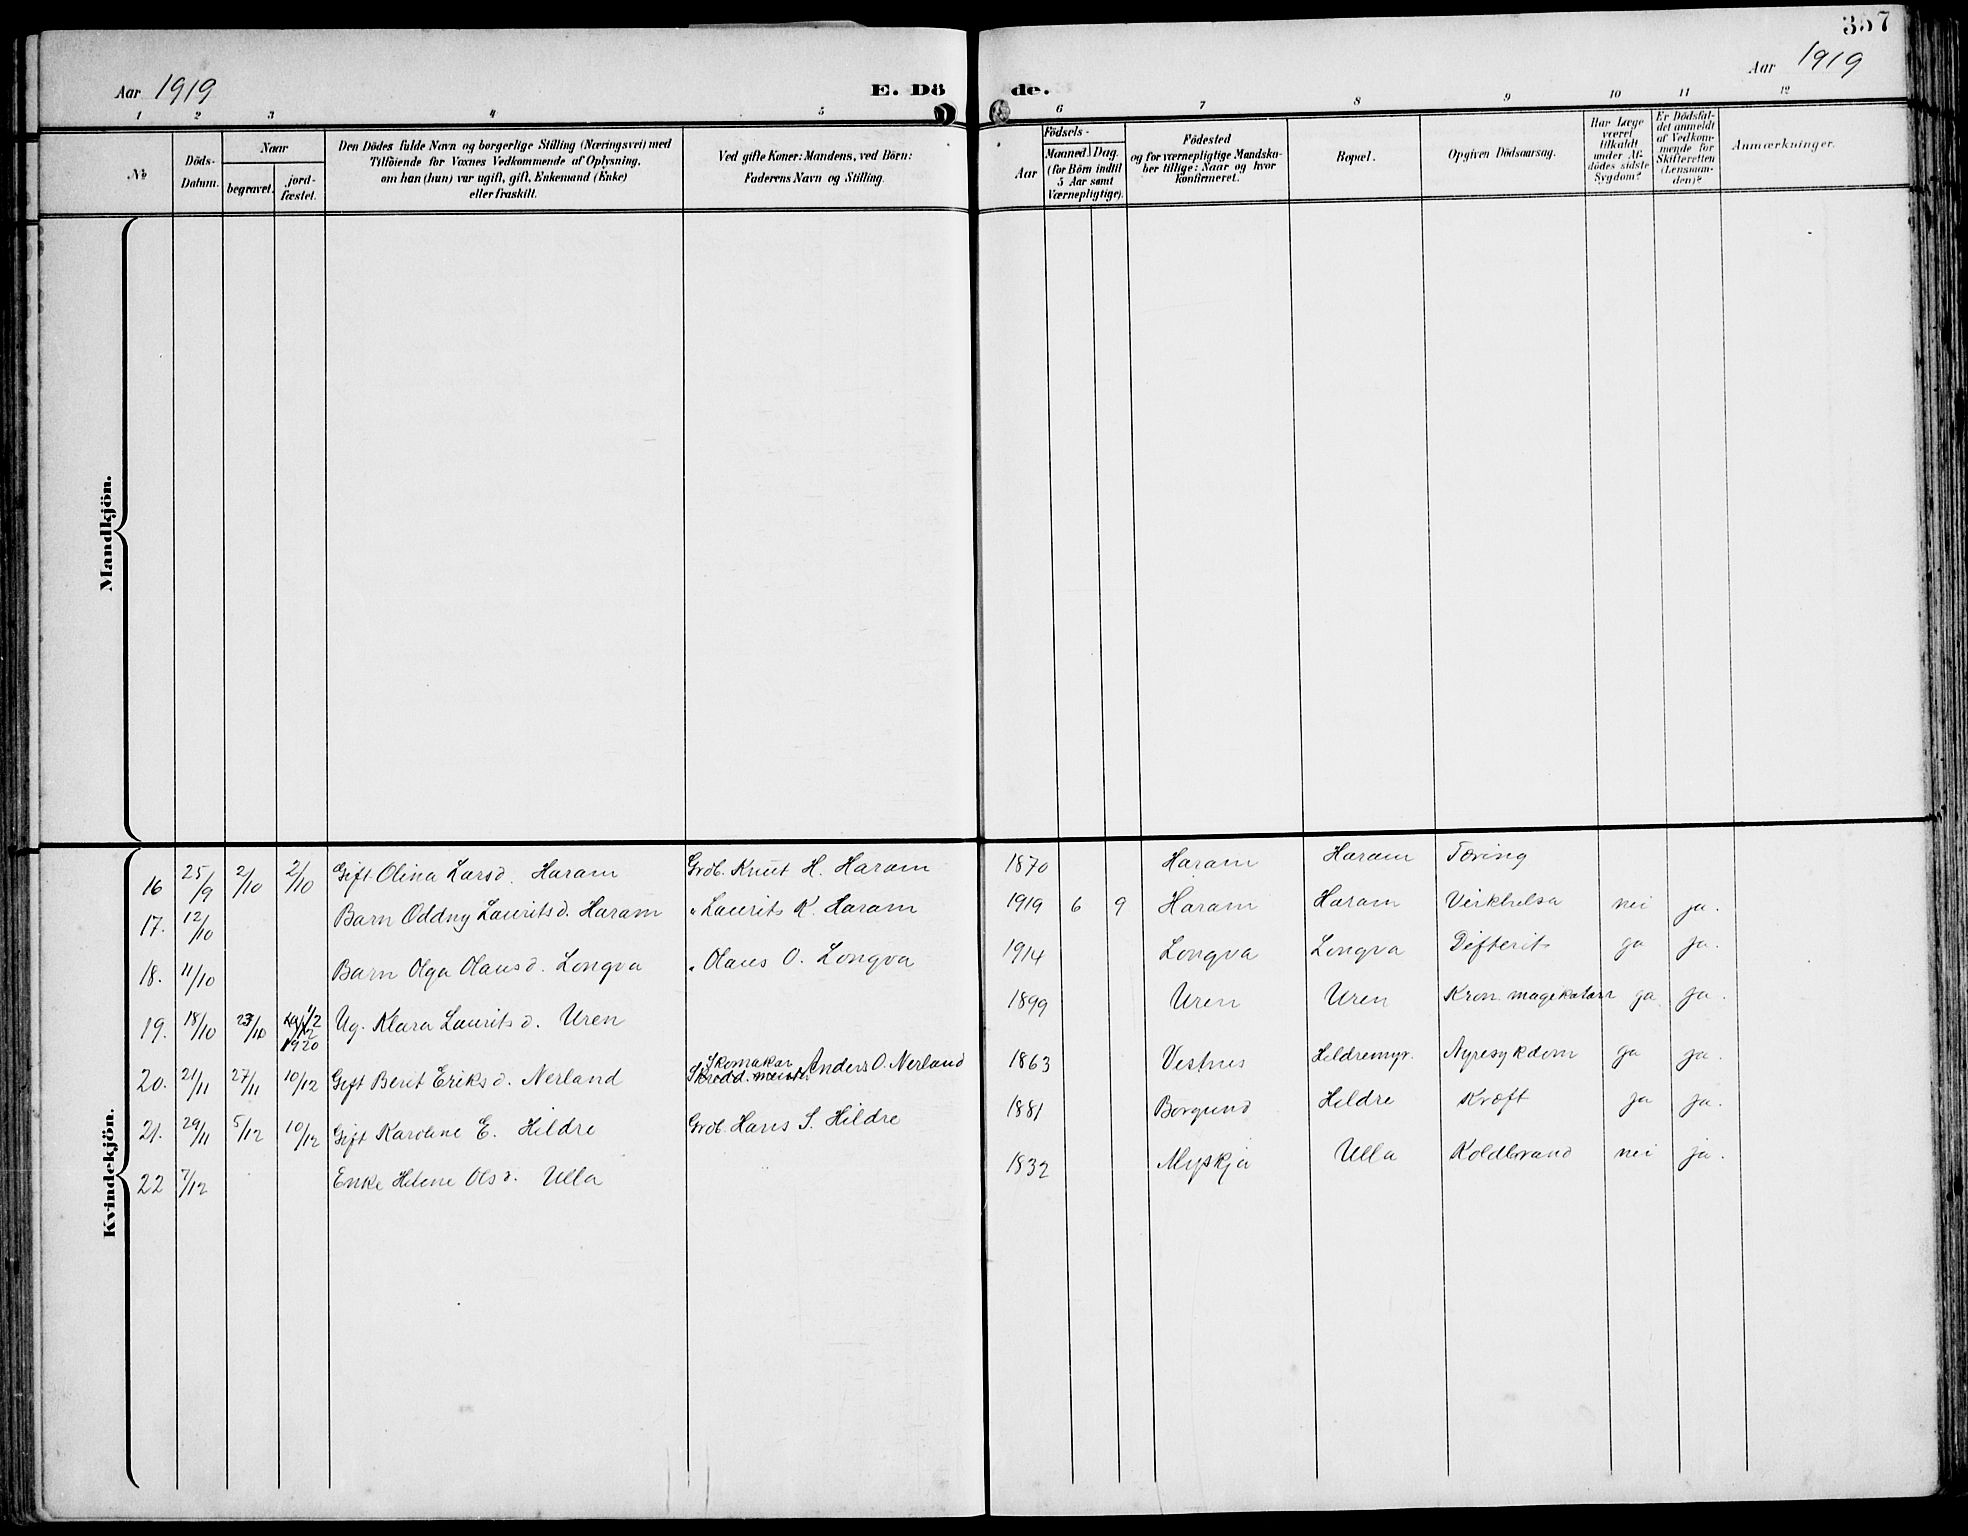 357
Aar 1919
E. Dö de.
Aar 1919
1 2 3 4 5 6 7 8 9 10 11 12
No
Döds-Datum.
Naar
begravet.
jord-fæstet.
Den Dödes fulde Navn og borgerlige Stilling (Næringsvei) med
Tilföiende for Voxnes Vedkommende af Oplysning,
om han (hun) var ugift, gift, Enkemand (Enke)
eller fraskilt.
Ved gifte Koner: Mandens, ved Börn:
Faderens Navn og Stilling.
Födsels-
Aar
Maaned. Dag.
(for Börn indtil
5 Aar samt
Værnepligtige).
Födested
og for værnepligtige Mandska-
ber tillige: Naar og hvor
konfirmeret.
Bopæl.
Opgiven Dödsaarsag.
Har Læge
været
tilkaldt
under Af-
dödes sidste
Sygdom?
Er Dödsfal-
det anmeldt
af Vedkom-
mende for
Skifteretten
(Lensman-
den)?
Anmærkninger.
Mandkjön.
Kvindekjön.
16 25/9 2/10 2/10 Gift Olina Larsd. Haram Grdb. Knut H. Haram 1870 Haram Haram Tæring
17. 12/10 Barn Oddny Lauritsd. Haram " Laurits K. Haram 1919 6 9 Haram Haram Veikhelsa nei ja.
18. 11/10 Barn Olga Olausd. Longva " Olaus O. Longva 1914 Longva Longva Difterit ja ja.
19. 18/10 23/10 1920 Ug. Klara Lauritsd. Uren 1899 Uren Uren Kron. magekatarr ja ja.
20. 21/11 27/11 10/12 Gift Berit Eriksd. Nerland Skomakar Anders O. Nerland 1863 Vestnes Hildremyr. Nyresykdom ja ja.
21. 29/11 5/12 10/12 Gift Karoline E. Hildre Grdb. Hans S. Hildre 1881 Borgund Hildre Kræft ja ja.
22 7/12 Enke Helene Olsd. Ulla 1832 Myskja Ulla Koldbrand nei ja.